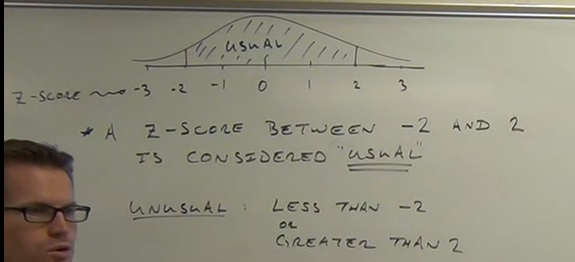 USUAL
Z-SCORE -3 -2 -1 0 1 2 3
* A Z-SCORE BETWEEN -2 AND 2
IS CONSIDERED "USUAL"
UNUSUAL: LESS THAN -2
OR
GREATER THAN 2